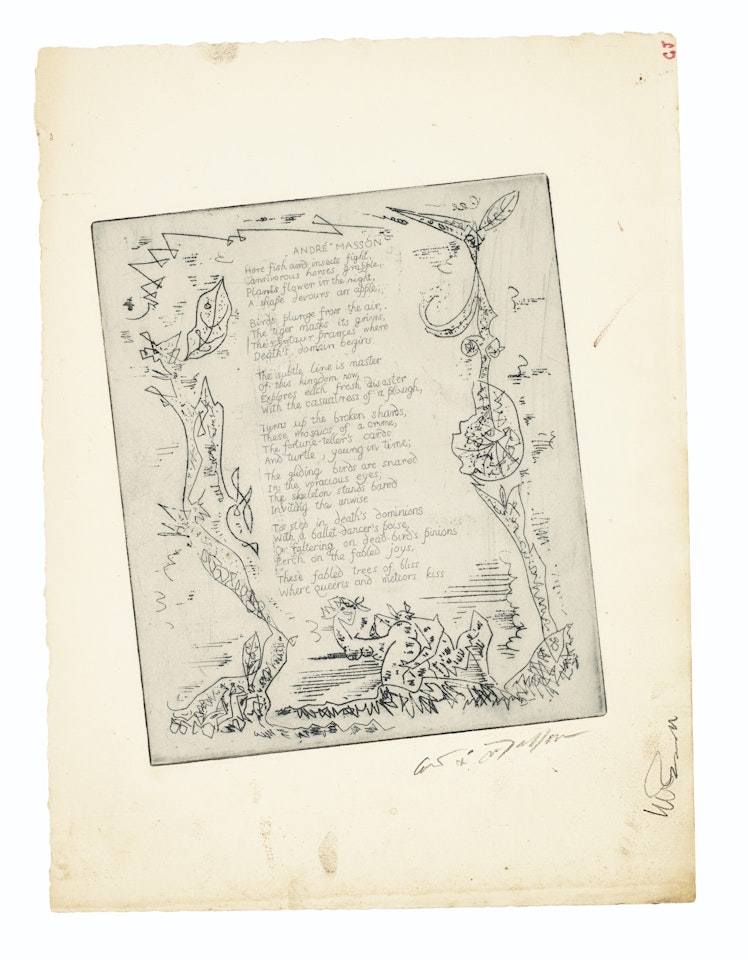 ANDRÉ MASSON
Here fish and insects fight,
Carnivorous horses grapple,
Plants flower in the night,
A shape devours an apple;
Birds plunge from the air,
The tiger masks its grins,
The centaur prances where
Death's domain begins.
The subtle line is master
Of this kingdom now,
Explores each fresh disaster
With the casualness of a plough,
Turns up the broken shards,
These mosaics of a crime,
The fortune-teller's cards
And turtle, young in time;
The gliding birds are snared
In the voracious eyes;
The skeleton stands bared
Inviting the unwise
To step in death's dominions
With a ballet-dancer's poise,
Or faltering on dead bird's pinions
Perch on the fabled joys,
These fabled trees of bliss
Where queens and meteors kiss
GJ